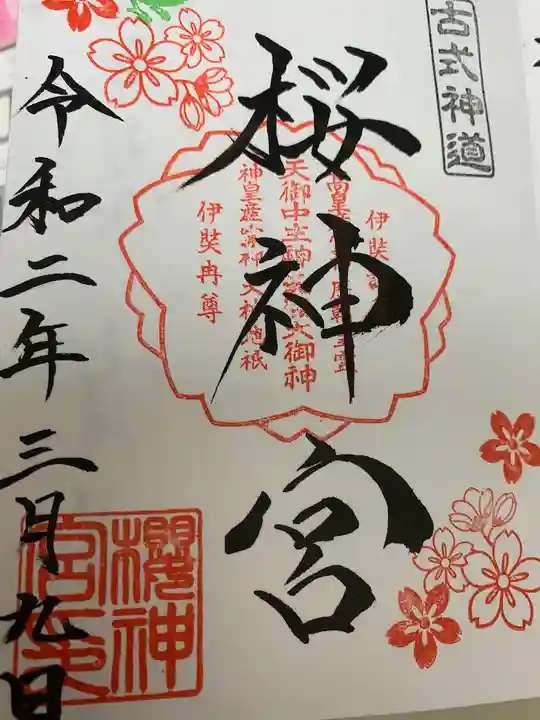 古式神道
桜神宮
伊奘
天御中主神
大御神
神皇産
伊奘冉尊
櫻神
宮
令和二年三月九日